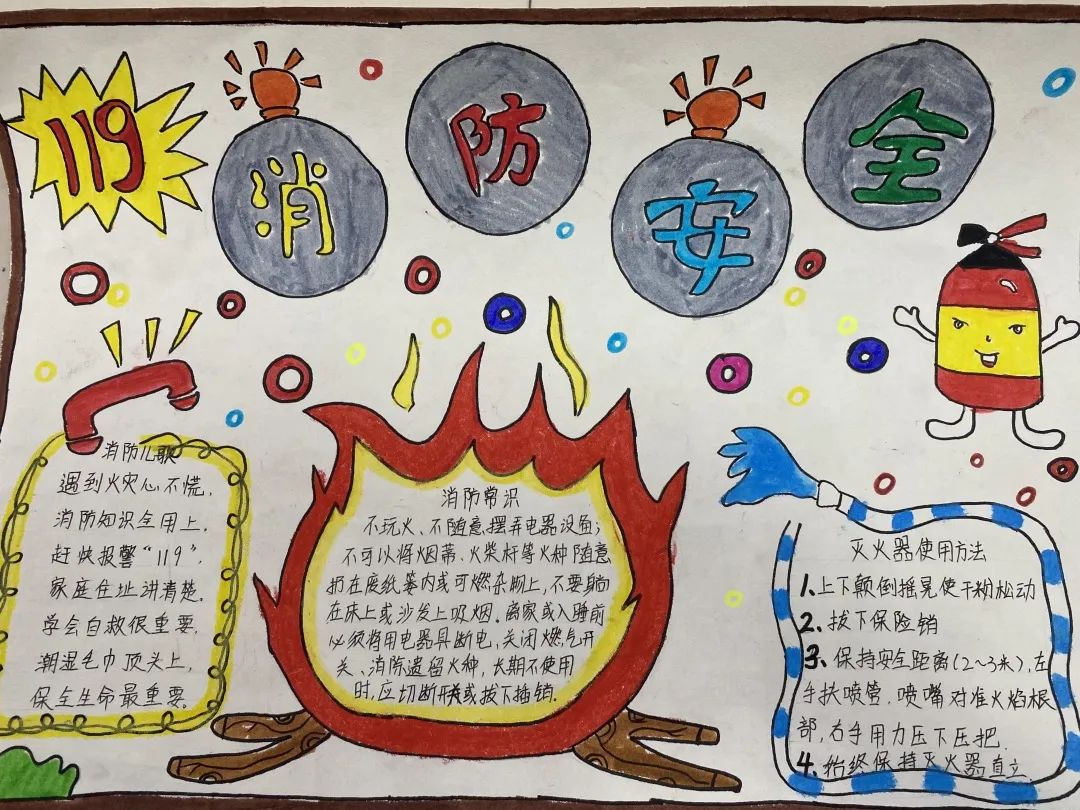 119
消防安全
消防儿歌
遇到火灾心不慌，
消防知识全用上，
赶快报警“119”，
家庭住址讲清楚，
学会自救很重要，
潮湿毛巾顶头上，
保全生命最重要。
消防常识
不玩火、不随意摆弄电器设备；
不可以将烟蒂、火柴杆等火种随意
扔在废纸篓内或可燃杂物上，不要躺
在床上或沙发上吸烟。离家或入睡前
必须将用电器具断电，关闭燃气开
关、消除遗留火种，长期不使用
时，应切断开关或拔下插销。
灭火器使用方法
1.上下颠倒摇晃使干粉松动
2.拔下保险销
3.保持安全距离(2~3米)，左
手扶喷管，喷嘴对准火焰根
部，右手用力压下压把.
4.始终保持灭火器直立.